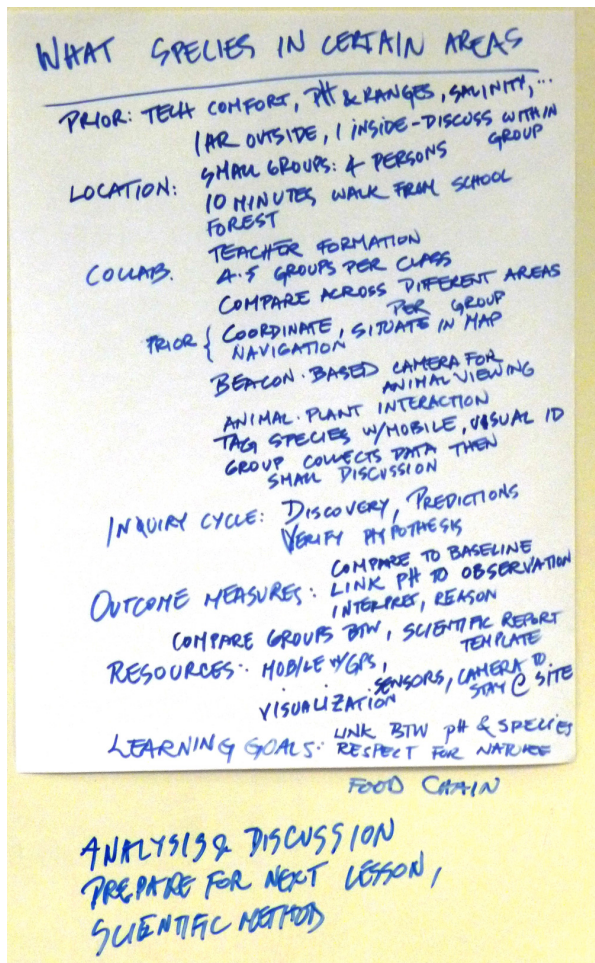 WHAT SPECIES IN CERTAIN AREAS
PRIOR: TECH COMFORT, PH & RANGES, SALINITY, ...
1 AR OUTSIDE, 1 INSIDE - DISCUSS WITHIN GROUP
LOCATION: SMALL GROUPS: 4 PERSONS
10 MINUTES WALK FROM SCHOOL
FOREST
TEACHER FORMATION
COLLAB. 4-5 GROUPS PER CLASS
COMPARE ACROSS DIFFERENT AREAS
PER GROUP
PRIOR { COORDINATE, SITUATE IN MAP
NAVIGATION
BEACON-BASED CAMERA FOR
ANIMAL VIEWING
ANIMAL-PLANT INTERACTION
TAG SPECIES W/MOBILE, VISUAL ID
GROUP COLLECTS DATA THEN
SMALL DISCUSSION
INQUIRY CYCLE: DISCOVERY, PREDICTIONS
VERIFY HYPOTHESIS
COMPARE TO BASELINE
OUTCOME MEASURES: LINK PH TO OBSERVATION
INTERPRET, REASON
COMPARE GROUPS BTW, SCIENTIFIC REPORT
TEMPLATE
RESOURCES: MOBILE W/GPS,
SENSORS, CAMERA TO
STAY @ SITE
VISUALIZATION
LEARNING GOALS: LINK BTW pH & SPECIES
RESPECT FOR NATURE
FOOD CHAIN
ANALYSIS & DISCUSSION
PREPARE FOR NEXT LESSON,
SCIENTIFIC METHOD